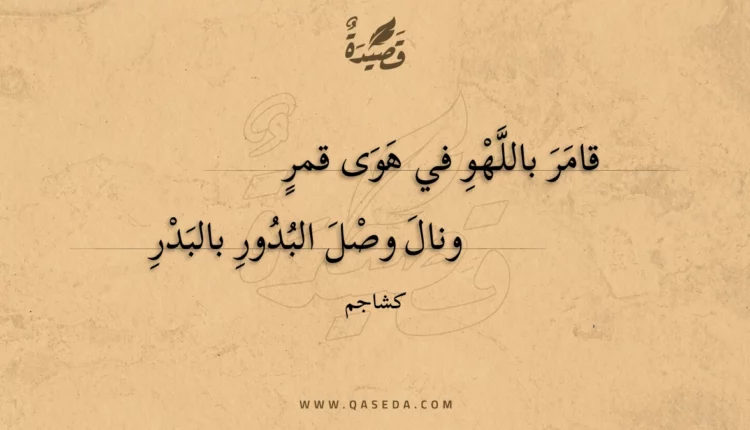 قَصِيدَةٌ
قامَرَ باللَّهْوِ في هَوَى قمرٍ
ونالَ وصْلَ البُدُورِ بالبَدْرِ
كشاجم
WWW.QASEDA.COM